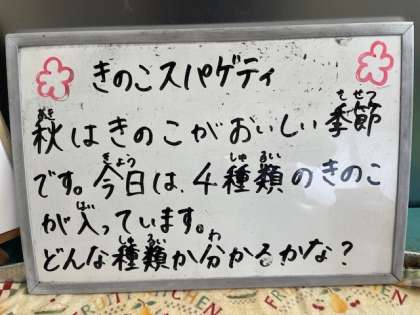 きのこスパゲティ
秋はきのこがおいしい季節
です。今日は、4種類のきのこ
が入っています。
どんな種類か分かるかな？